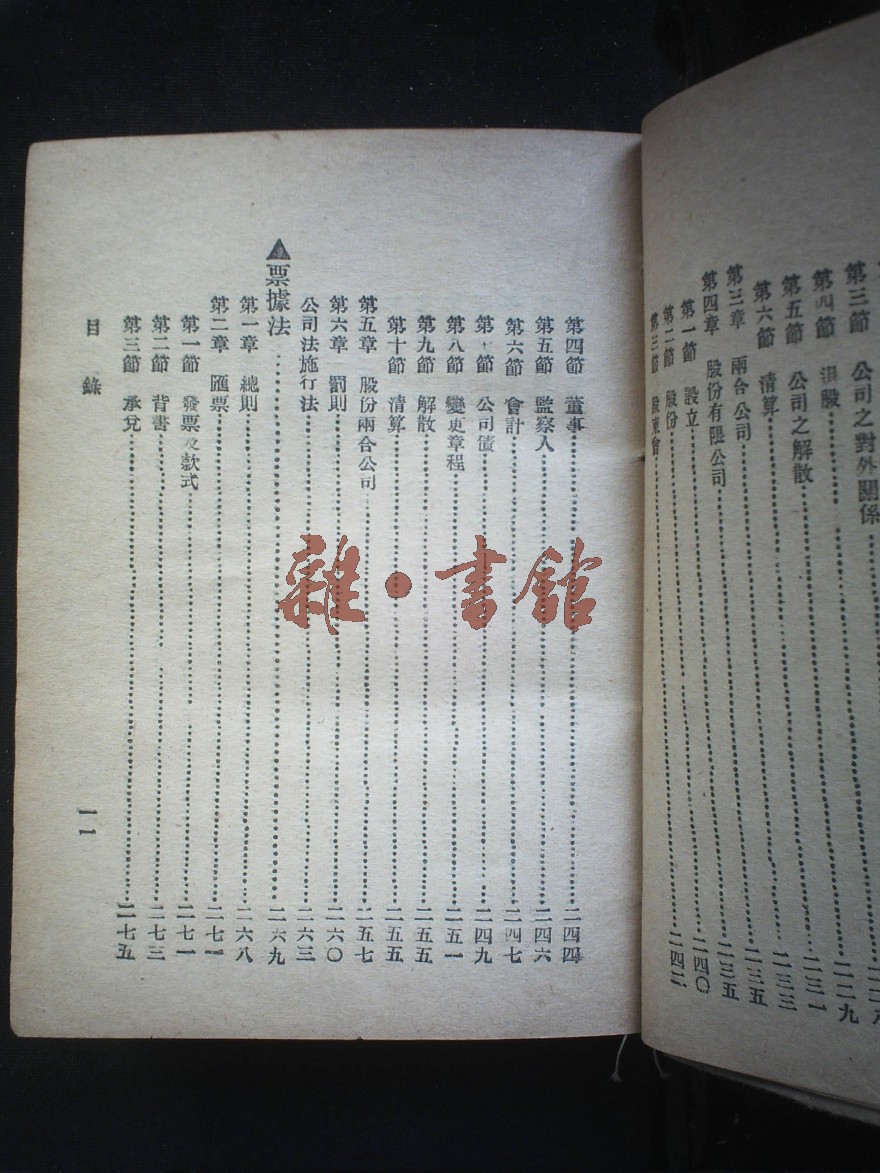 第三節 公司之對外關係
第四節 退股
第五節 公司之解散 二二九
第六節 清算 二三一
第三章 兩合公司 二三三
第四章 股份有限公司 二三五
第一節 設立 二三五
第二節 股份 二四〇
第三節 股東會 二四二
第四節 董事 二四四
第五節 監察人 二四六
第六節 會計 二四七
第七節 公司債 二四九
第八節 變更章程 二五一
第九節 解散 二五五
第十節 清算 二五五
第五章 股份兩合公司 二五七
第六章 罰則 二六〇
公司法施行法 二六三
▲票據法 二六九
第一章 總則 二六八
第二章 匯票 二七一
第一節 發票及款式 二七一
第二節 背書 二七三
第三節 承兌 二七五
目錄 一一
雜·書館